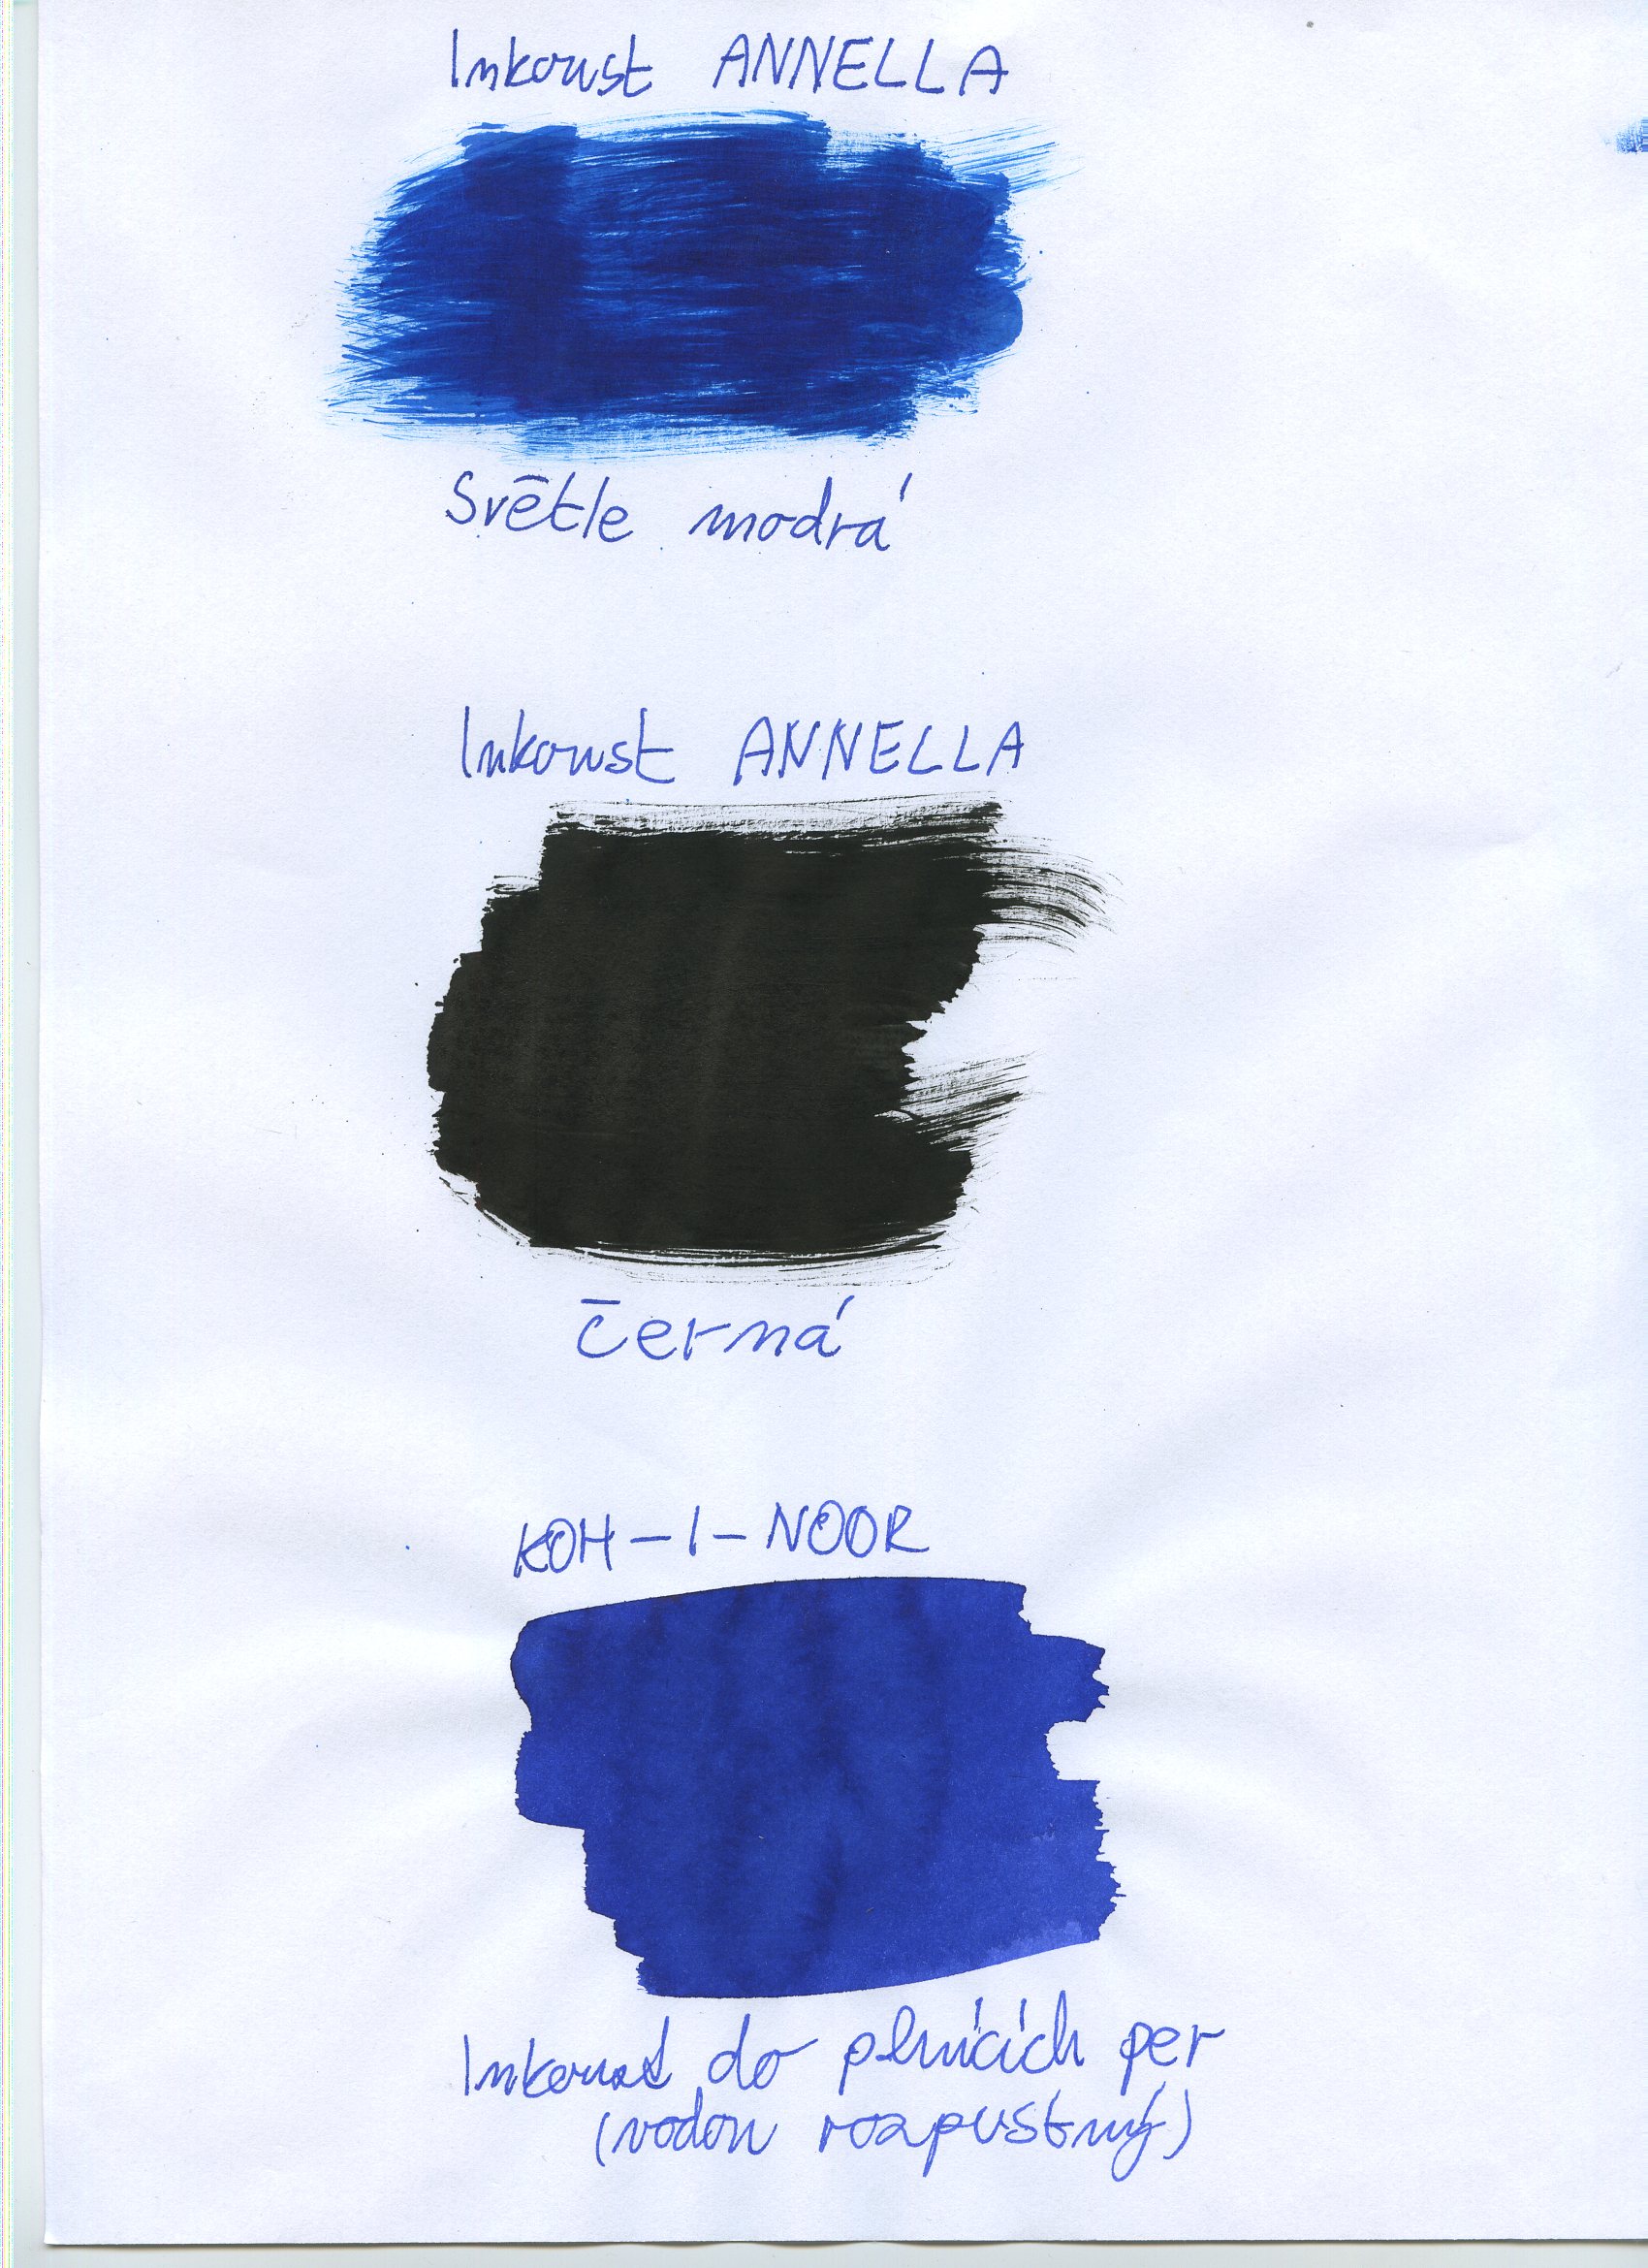 Inkoust ANNELLA
Světle modrá
Inkoust ANNELLA
Černá
KOH-I-NOOR
Inkoust do plnících per
(vodou rozpustný)